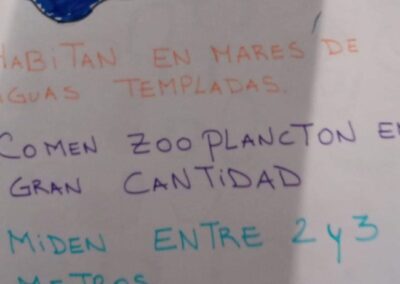 HABITAN EN MARES DE
AGUAS TEMPLADAS.
COMEN ZOOPLANCTON EN
GRAN CANTIDAD
MIDEN ENTRE 2 y 3
METROS